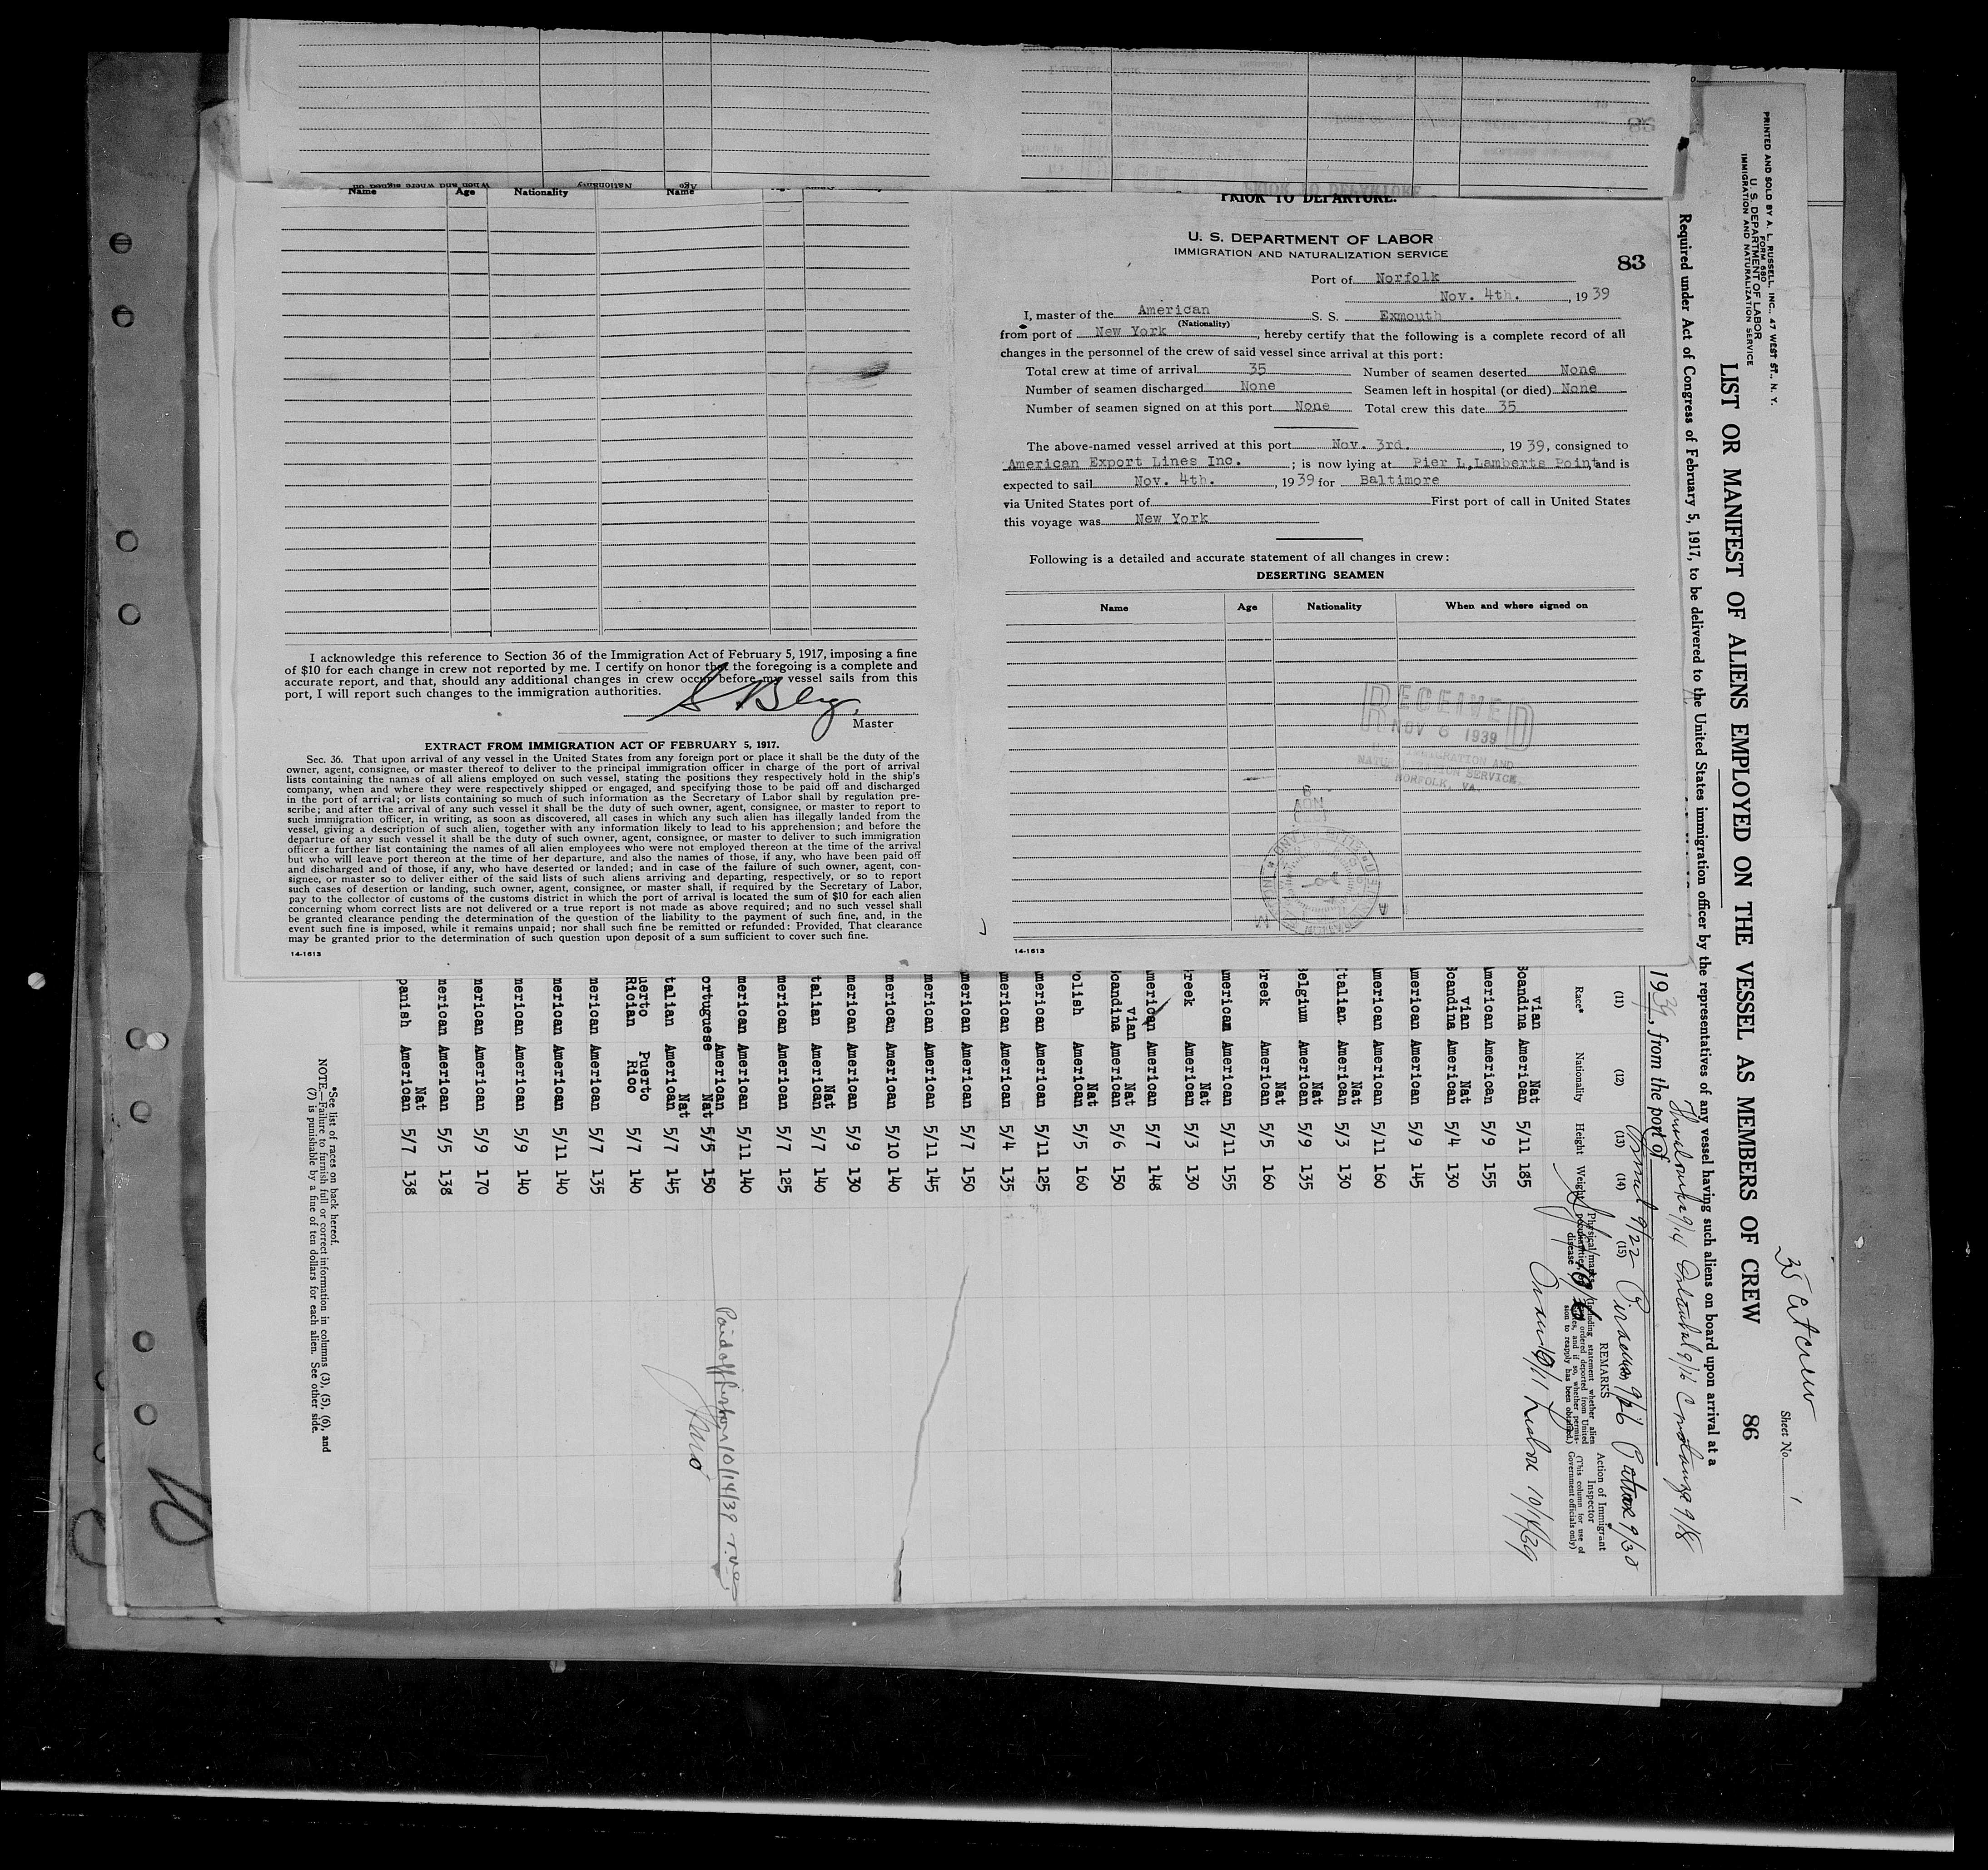 Name Age Nationality Name
PRIOR TO DEPARTURE.
U. S. DEPARTMENT OF LABOR
IMMIGRATION AND NATURALIZATION SERVICE
83
Port of Norfolk
Nov. 4th., 1939
I, master of the American S. S. Exmouth
(Nationality)
from port of New York, hereby certify that the following is a complete record of all
changes in the personnel of the crew of said vessel since arrival at this port:
Total crew at time of arrival 35 Number of seamen deserted None
Number of seamen discharged None Seamen left in hospital (or died) None
Number of seamen signed on at this port None Total crew this date 35
The above-named vessel arrived at this port Nov. 3rd., 1939, consigned to
American Export Lines Inc. ; is now lying at Pier L, Lamberts Point, and is
expected to sail Nov. 4th., 1939 for Baltimore
via United States port of First port of call in United States
this voyage was New York
Following is a detailed and accurate statement of all changes in crew:
DESERTING SEAMEN
Name Age Nationality When and where signed on
RECEIVED
NOV 8 1939
IMMIGRATION AND
NATURALIZATION SERVICE
NORFOLK, VA.
14-1613
I acknowledge this reference to Section 36 of the Immigration Act of February 5, 1917, imposing a fine
of $10 for each change in crew not reported by me. I certify on honor that the foregoing is a complete and
accurate report, and that, should any additional changes in crew occur before my vessel sails from this
port, I will report such changes to the immigration authorities.
Master
EXTRACT FROM IMMIGRATION ACT OF FEBRUARY 5, 1917.
Sec. 36. That upon arrival of any vessel in the United States from any foreign port or place it shall be the duty of the
owner, agent, consignee, or master thereof to deliver to the principal immigration officer in charge of the port of arrival
lists containing the names of all aliens employed on such vessel, stating the positions they respectively hold in the ship's
company, when and where they were respectively shipped or engaged, and specifying those to be paid off and discharged
in the port of arrival; or lists containing so much of such information as the Secretary of Labor shall by regulation pre-
scribe; and after the arrival of any such vessel it shall be the duty of such owner, agent, consignee, or master to report to
such immigration officer, in writing, as soon as discovered, all cases in which any such alien has illegally landed from the
vessel, giving a description of such alien, together with any information likely to lead to his apprehension; and before the
departure of any such vessel it shall be the duty of such owner, agent, consignee, or master to deliver to such immigration
officer a further list containing the names of all alien employees who were not employed thereon at the time of the arrival
but who will leave port thereon at the time of her departure, and also the names of those, if any, who have been paid off
and discharged and of those, if any, who have deserted or landed; and in case of the failure of such owner, agent, con-
signee, or master so to deliver either of the said lists of such aliens arriving and departing, respectively, or so to report
such cases of desertion or landing, such owner, agent, consignee, or master shall, if required by the Secretary of Labor,
pay to the collector of customs of the customs district in which the port of arrival is located the sum of $10 for each alien
concerning whom correct lists are not delivered or a true report is not made as above required; and no such vessel shall
be granted clearance pending the determination of the question of the liability to the payment of such fine, and, in the
event such fine is imposed, while it remains unpaid; nor shall such fine be remitted or refunded: Provided, That clearance
may be granted prior to the determination of such question upon deposit of a sum sufficient to cover such fine.
14-1613
PRINTED AND SOLD BY A. L. RUSSELL, INC., 47 WEST ST., N. Y.
FORM 680
U. S. DEPARTMENT OF LABOR
IMMIGRATION AND NATURALIZATION SERVICE
35 at crew
Sheet No. 1
LIST OR MANIFEST OF ALIENS EMPLOYED ON THE VESSEL AS MEMBERS OF CREW 86
Required under Act of Congress of February 5, 1917, to be delivered to the United States immigration officer by the representatives of any vessel having such aliens on board upon arrival at a
1939, from the port of
Istanbul 9/16 9/18
9/22 Piraeus 9/26 Patras 9/30
(11) (12) (13) (14) (15)
REMARKS
Race* Nationality Height Weight
Action of Immigrant
Inspector
(This column for use of
Government officials only)
Oran 10/11 Lisbon 10/14/39
vian Nat
Scandina American 5/11 185
American American 5/9 155
vian Nat
Scandina American 5/4 130
American American 5/9 145
American American 5/11 160
Nat
Italian American 5/3 130
Nat
Belgium American 5/9 135
Nat
reek American 5/5 160
American American 5/11 155
Nat
reek American 5/3 130
American American 5/7 148
vian Nat
Scandina American 5/6 150
Nat
olish American 5/5 160
merican American 5/11 125
merican American 5/4 135
merican American 5/7 150
merican American 5/11 145
merican American 5/10 140
merican American 5/9 130
Nat
talian American 5/7 140
merican American 5/7 125
merican American 5/11 140
American
ortuguese Nat 5/5 150 Paid off Lisbon 10/14/39
Nat
talian American 5/7 145
uerto Puerto
Rician Rico 5/7 140
merican American 5/7 135
merican American 5/11 140
merican American 5/9 140
merican American 5/9 170
merican American 5/5 138
Nat
panish American 5/7 138
*See list of races on back hereof.
NOTE.—Failure to furnish full or correct information in columns (3), (5), (6), and
(7) is punishable by a fine of ten dollars for each alien. See other side.